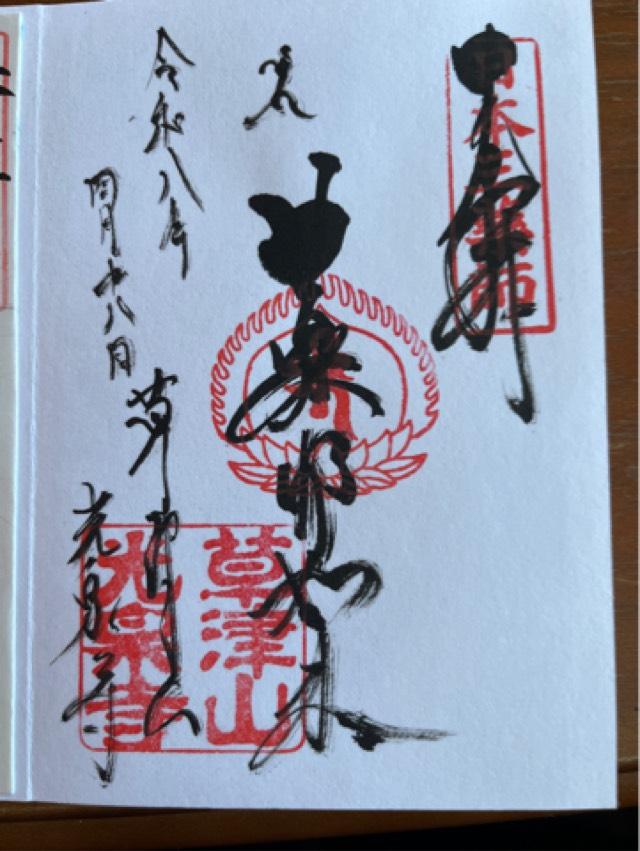 奉拝
日本三薬師
薬師如来
令和八年
四月十八日
草津山
光泉寺
草津山
光泉寺